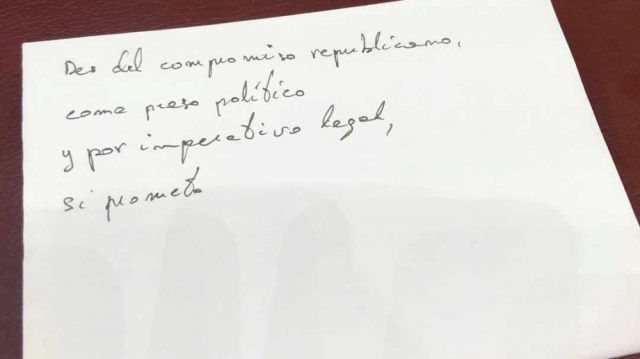 Des del compromiso republicano,
como preso político
y por imperativo legal,
si prometo